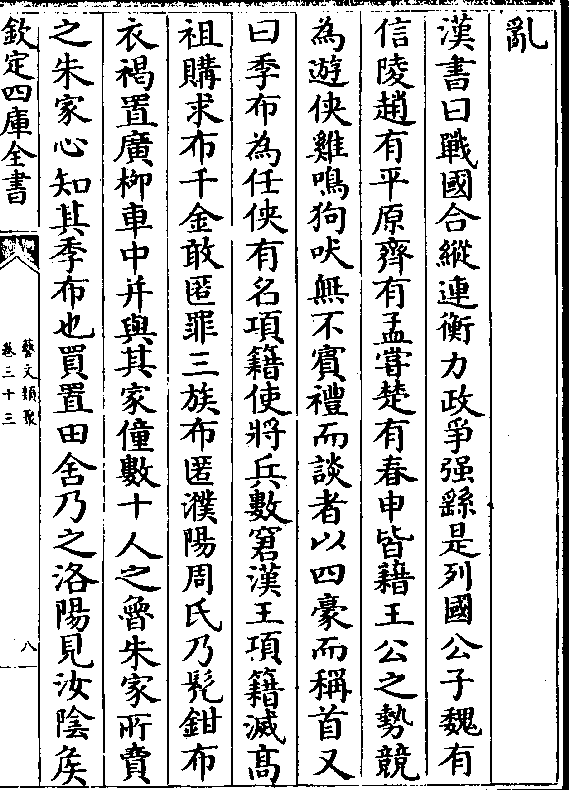 亂
漢書曰戰國合縱連衡力政爭强繇是列國公子魏有
信陵趙有平原齊有孟嘗楚有春申皆籍王公之勢競
為遊俠雞鳴狗吠無不賓禮而談者以四豪而稱首又
曰季布為任俠有名項籍使將兵數窘漢王項籍滅髙
祖購求布千金敢匿罪三族布匿濮陽周氏乃髡鉗布
衣褐置廣柳車中并與其家僮數十人之魯朱家所賣
之朱家心知其季布也買置田舍乃之洛陽見汝陰矦
欽定四庫全書
藝文類聚
卷三十三
八